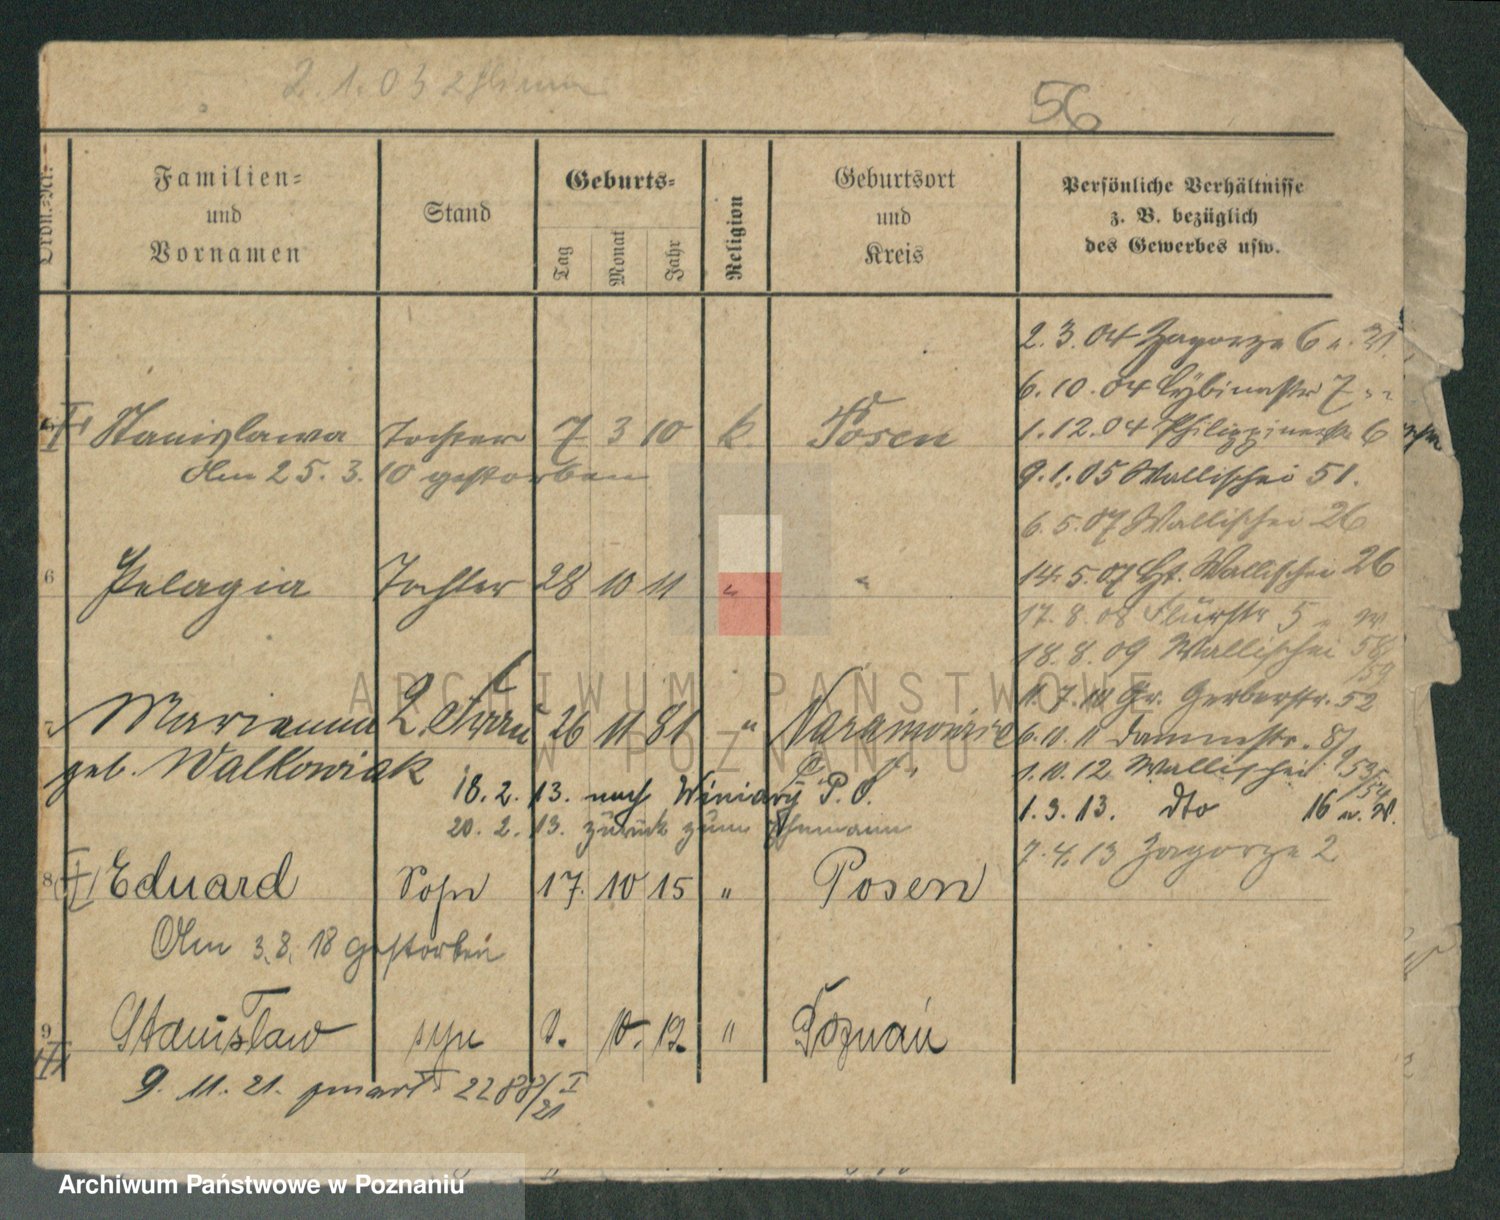 2.1.03
56
Ordn.-Nr.
Familien-
und
Vornamen
Stand
Geburts-
Tag
Monat
Jahr
Religion
Geburtsort
und
Kreis
Persönliche Verhältnisse
z. B. bezüglich
des Gewerbes usw.
2.3.04 Zagorze 6
6.10.04 Cybinastr 7
1.12.04 Philippinerstr. 6
Stanislawa Tochter 7 3 10 k. Posen
Am 25.3.10 gestorben
9.1.05 Wallischei 51.
6.5.07 Wallischei 26
14.5.07 Wallischei 26
6 Pelagia Tochter 28 10 11 " "
17.8.08 Flurstr 5
18.8.09 Wallischei 58/59
ARCHIWUM PAŃSTWOWE
W POZNANIU
1.7.10 Gr. Gerberstr. 52
7 Marianna 2. Frau 26 11 81 " Naramowice
6.10.11 Dammstr. 8/9
geb. Walkowiak
P. O.
1.10.12 Wallischei 53/54
18.2.13. nach Winiary P. O.
1.3.13. dto 16 u. W.
20.2.13. zurück zum Ehemann
7.4.13 Zagorze 2
8 Eduard Sohn 17. 10 15 " Posen
Am 3.8.18 gestorben
9 Stanisław syn 9. 10. 19. " Poznań
9.11.21. zmarł 2288/I 21
Archiwum Państwowe w Poznaniu